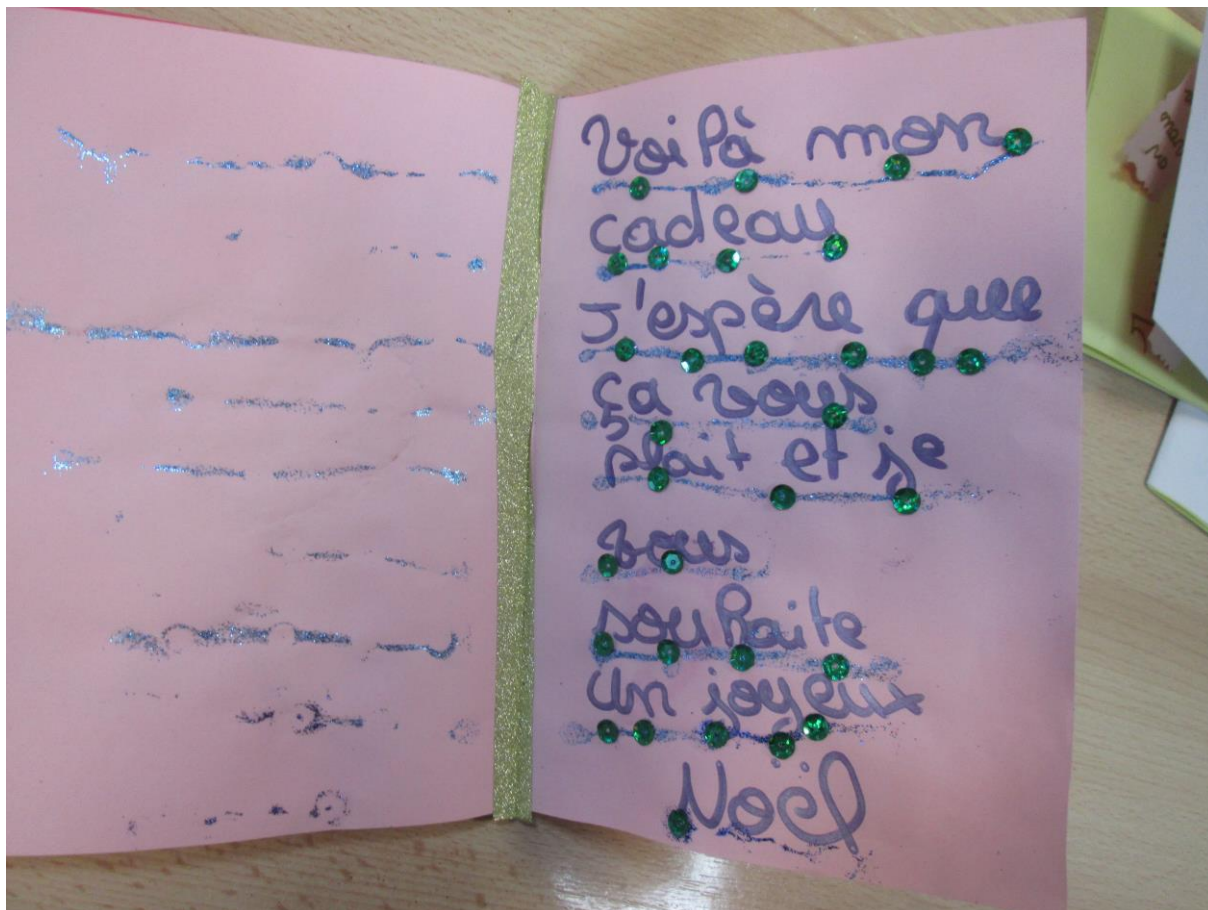 Voilà mon
cadeau
J'espère que
ça vous
plait et je
vous
souhaite
un joyeux
Noël